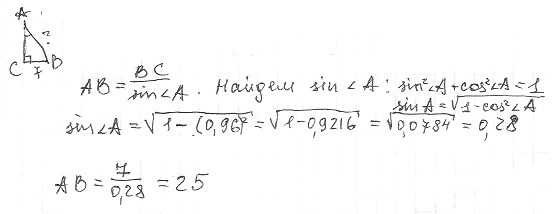 A
?
C 7 B
AB = BC/sin∠A. Найдем sin∠A: sin²∠A + cos²∠A = 1
sin A = √(1-cos²∠A)
sin∠A = √(1-(0,96)²) = √(1-0,9216) = √0,0784 = 0,28
AB = 7/0,28 = 25